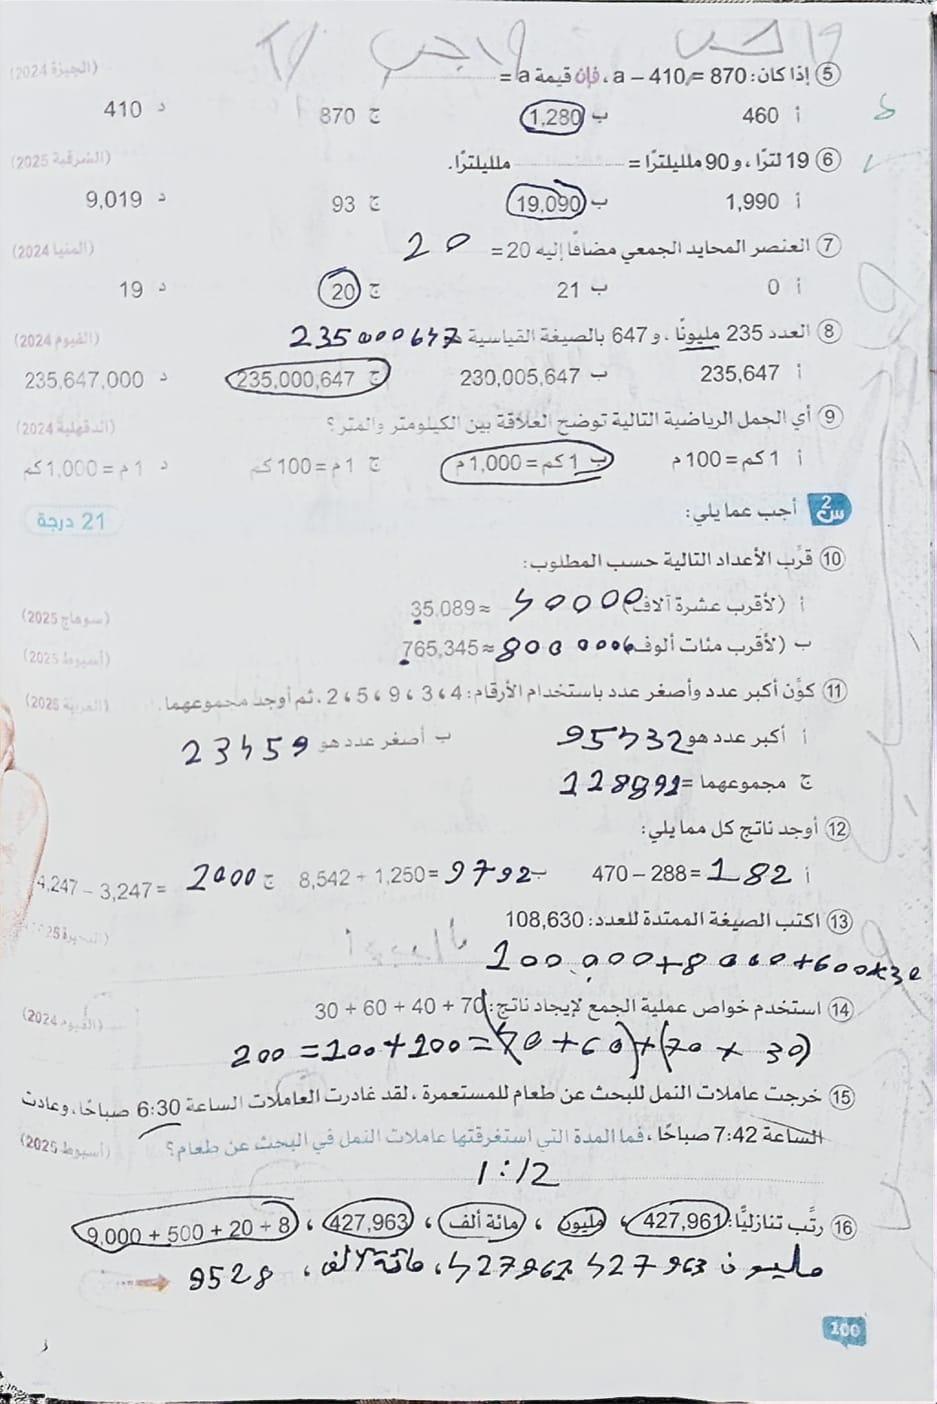 واجب
⑤ إذا كان: a − 410 = 870، فإن قيمة a = (الجيزة 2024)
أ 460 ب 1,280 ج 870 د 410
⑥ 19 لترًا، و 90 ملليلترًا = ملليلترًا. (الشرقية 2025)
أ 1,990 ب 19,090 ج 93 د 9,019
⑦ العنصر المحايد الجمعي مضافًا إليه 20 = 20 (المنيا 2024)
أ 0 ب 21 ج 20 د 19
⑧ العدد 235 مليونًا، و 647 بالصيغة القياسية 235000647 (الفيوم 2024)
أ 235,647 ب 230,005,647 ج 235,000,647 د 235,647,000
⑨ أي الجمل الرياضية التالية توضح العلاقة بين الكيلومتر والمتر؟ (الدقهلية 2024)
أ 1 كم = 100 م ب 1 كم = 1,000 م ج 1 م = 100 كم د 1 م = 1,000 كم
س2 أجب عما يلي: 21 درجة
⑩ قرِّب الأعداد التالية حسب المطلوب:
أ (لأقرب عشرة آلاف) 35,089 ≈ 40000 (سوهاج 2025)
ب (لأقرب مئات ألوف) 765,345 ≈ 800000 (أسيوط 2025)
⑪ كوِّن أكبر عدد وأصغر عدد باستخدام الأرقام: 4، 3، 9، 5، 2، ثم أوجد مجموعهما. (الغربية 2025)
أ أكبر عدد هو 95432 ب أصغر عدد هو 23459
ج مجموعهما = 118891
⑫ أوجد ناتج كل مما يلي:
أ 470 − 288 = 182 ب 8,542 + 1,250 = 9792 ج 4,247 − 3,247 = 2000
⑬ اكتب الصيغة الممتدة للعدد: 108,630 (البحيرة 2025)
100000+8000+600+30
⑭ استخدم خواص عملية الجمع لإيجاد ناتج: 30 + 60 + 40 + 70 (الفيوم 2024)
200 = 100+100 = (40+60)+(70+30)
⑮ خرجت عاملات النمل للبحث عن طعام للمستعمرة، لقد غادرت العاملات الساعة 6:30 صباحًا، وعادت
الساعة 7:42 صباحًا، فما المدة التي استغرقتها عاملات النمل في البحث عن طعام؟ (أسيوط 2025)
1:12
⑯ رتِّب تنازليًّا: 427,961، مليون، مائة ألف، 427,963، 9,000 + 500 + 20 + 8
مليون 427963 427961، مائة ألف، 9528
100